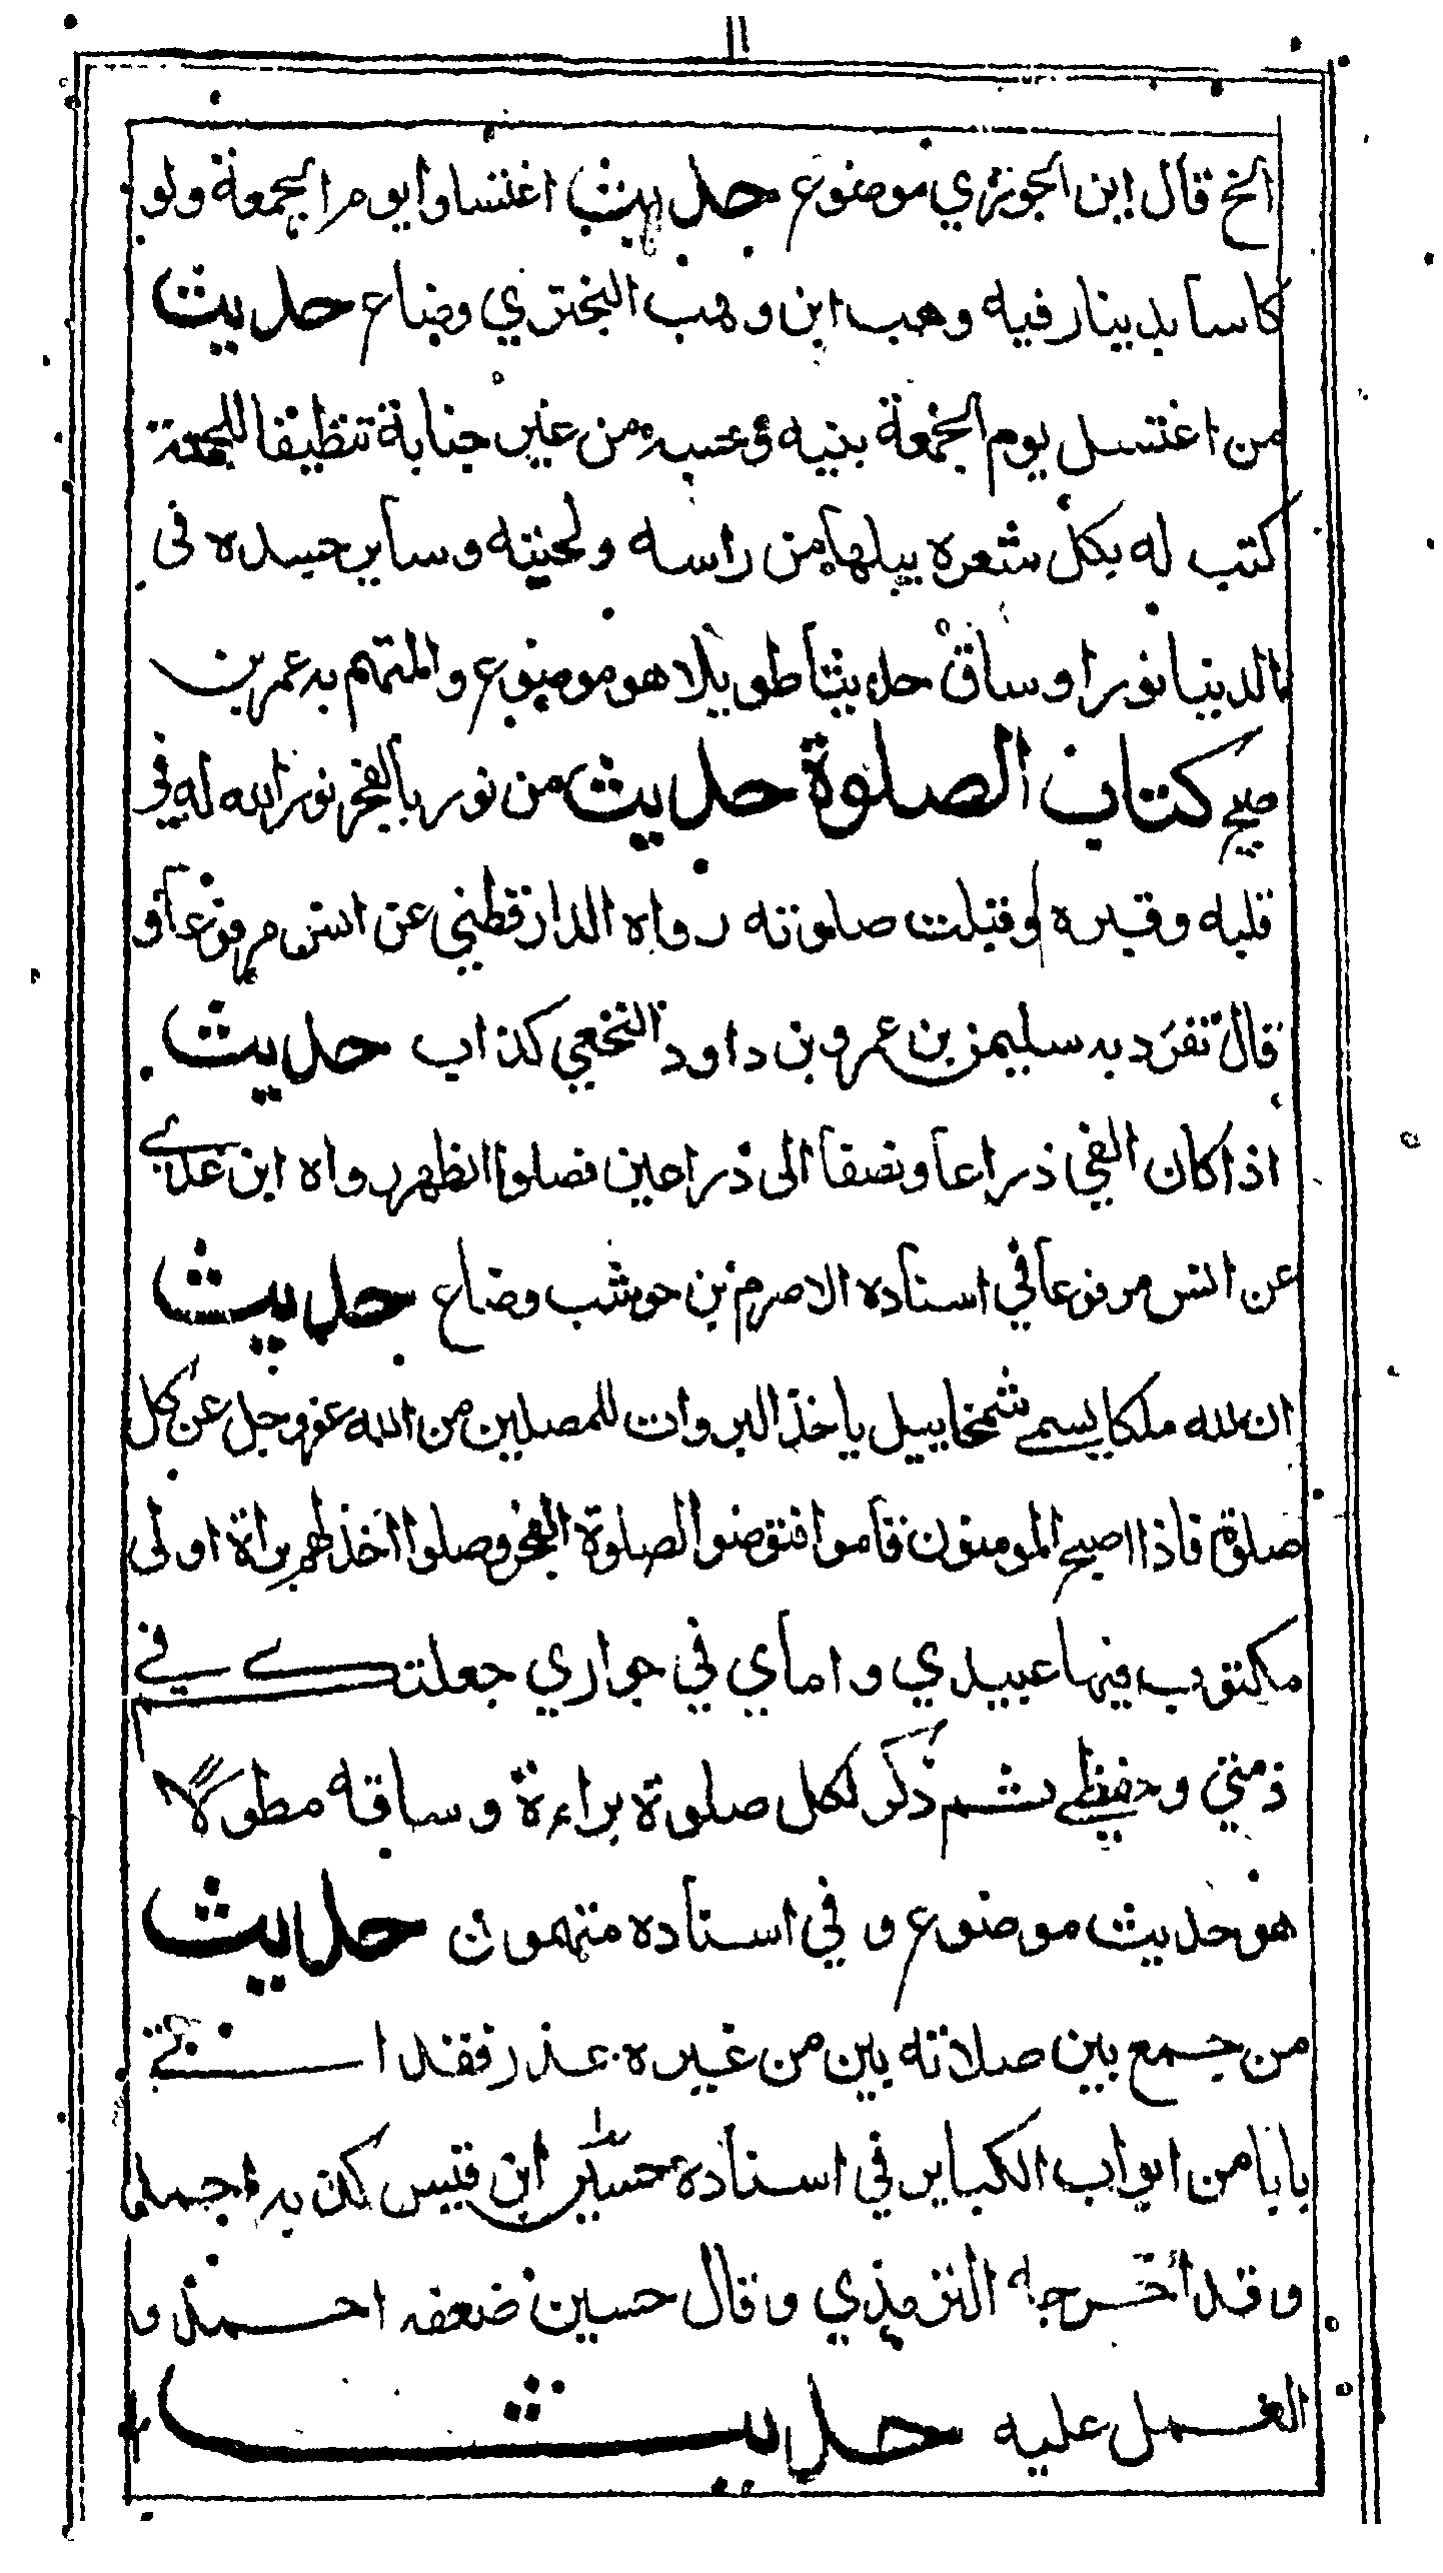 ۱۱
الخ قال ابن الجوزي موضوع حديث اغتسلوا يوم الجمعة ولو
كاسا بدينار فيه وهب ابن وهب البختري وضاع حديث
من اغتسل يوم الجمعة بنيه وحسبه من غير جنابة تنظيفا للجمعة
كتب له بكل شعره يبلها من راسه ولحيته وساير جسده في
الدينا نورا وساق حديثا طويلا هو موضوع والمتهم به عمر بن
صبح كتاب الصلوة حديث من نور بالفجر نور الله له في
قلبه وقبره وقبلت صلوته رواه الدارقطني عن انس مرفوعا و
قال تفرد به سليمن بن عمرو بن داود النخعي كذاب حديث
اذا كان الفي ذراعا ونصفا الى ذراعين فصلوا الظهر رواه ابن عدي
عن انس مرفوعا في اسناده الاصرم بن حوشب وضاع حديث
ان لله ملكا يسمى شمخاييل ياخذ البروات للمصلين من الله عز وجل عن كل
صلوة فاذا اصبح المومنون قاموا فتوضوا لصلوة الفجر وصلوا اخذ لهم براة اولى
مكتوب فيها عبيدي واماي في جواري جعلتك في
ذمتي وحفظي ثم ذكر لكل صلوة براءة وساقه مطولا
هو حديث موضوع وفي اسناده متهمون حديث
من جمع بين صلاته بين من غيره عذر فقد اتى
بابا من ابواب الكباير في اسناده حسين ابن قيس كذبه احمد
وقد اخرجه الترمذي وقال حسين ضعفه احمد و
العمل عليه حديث